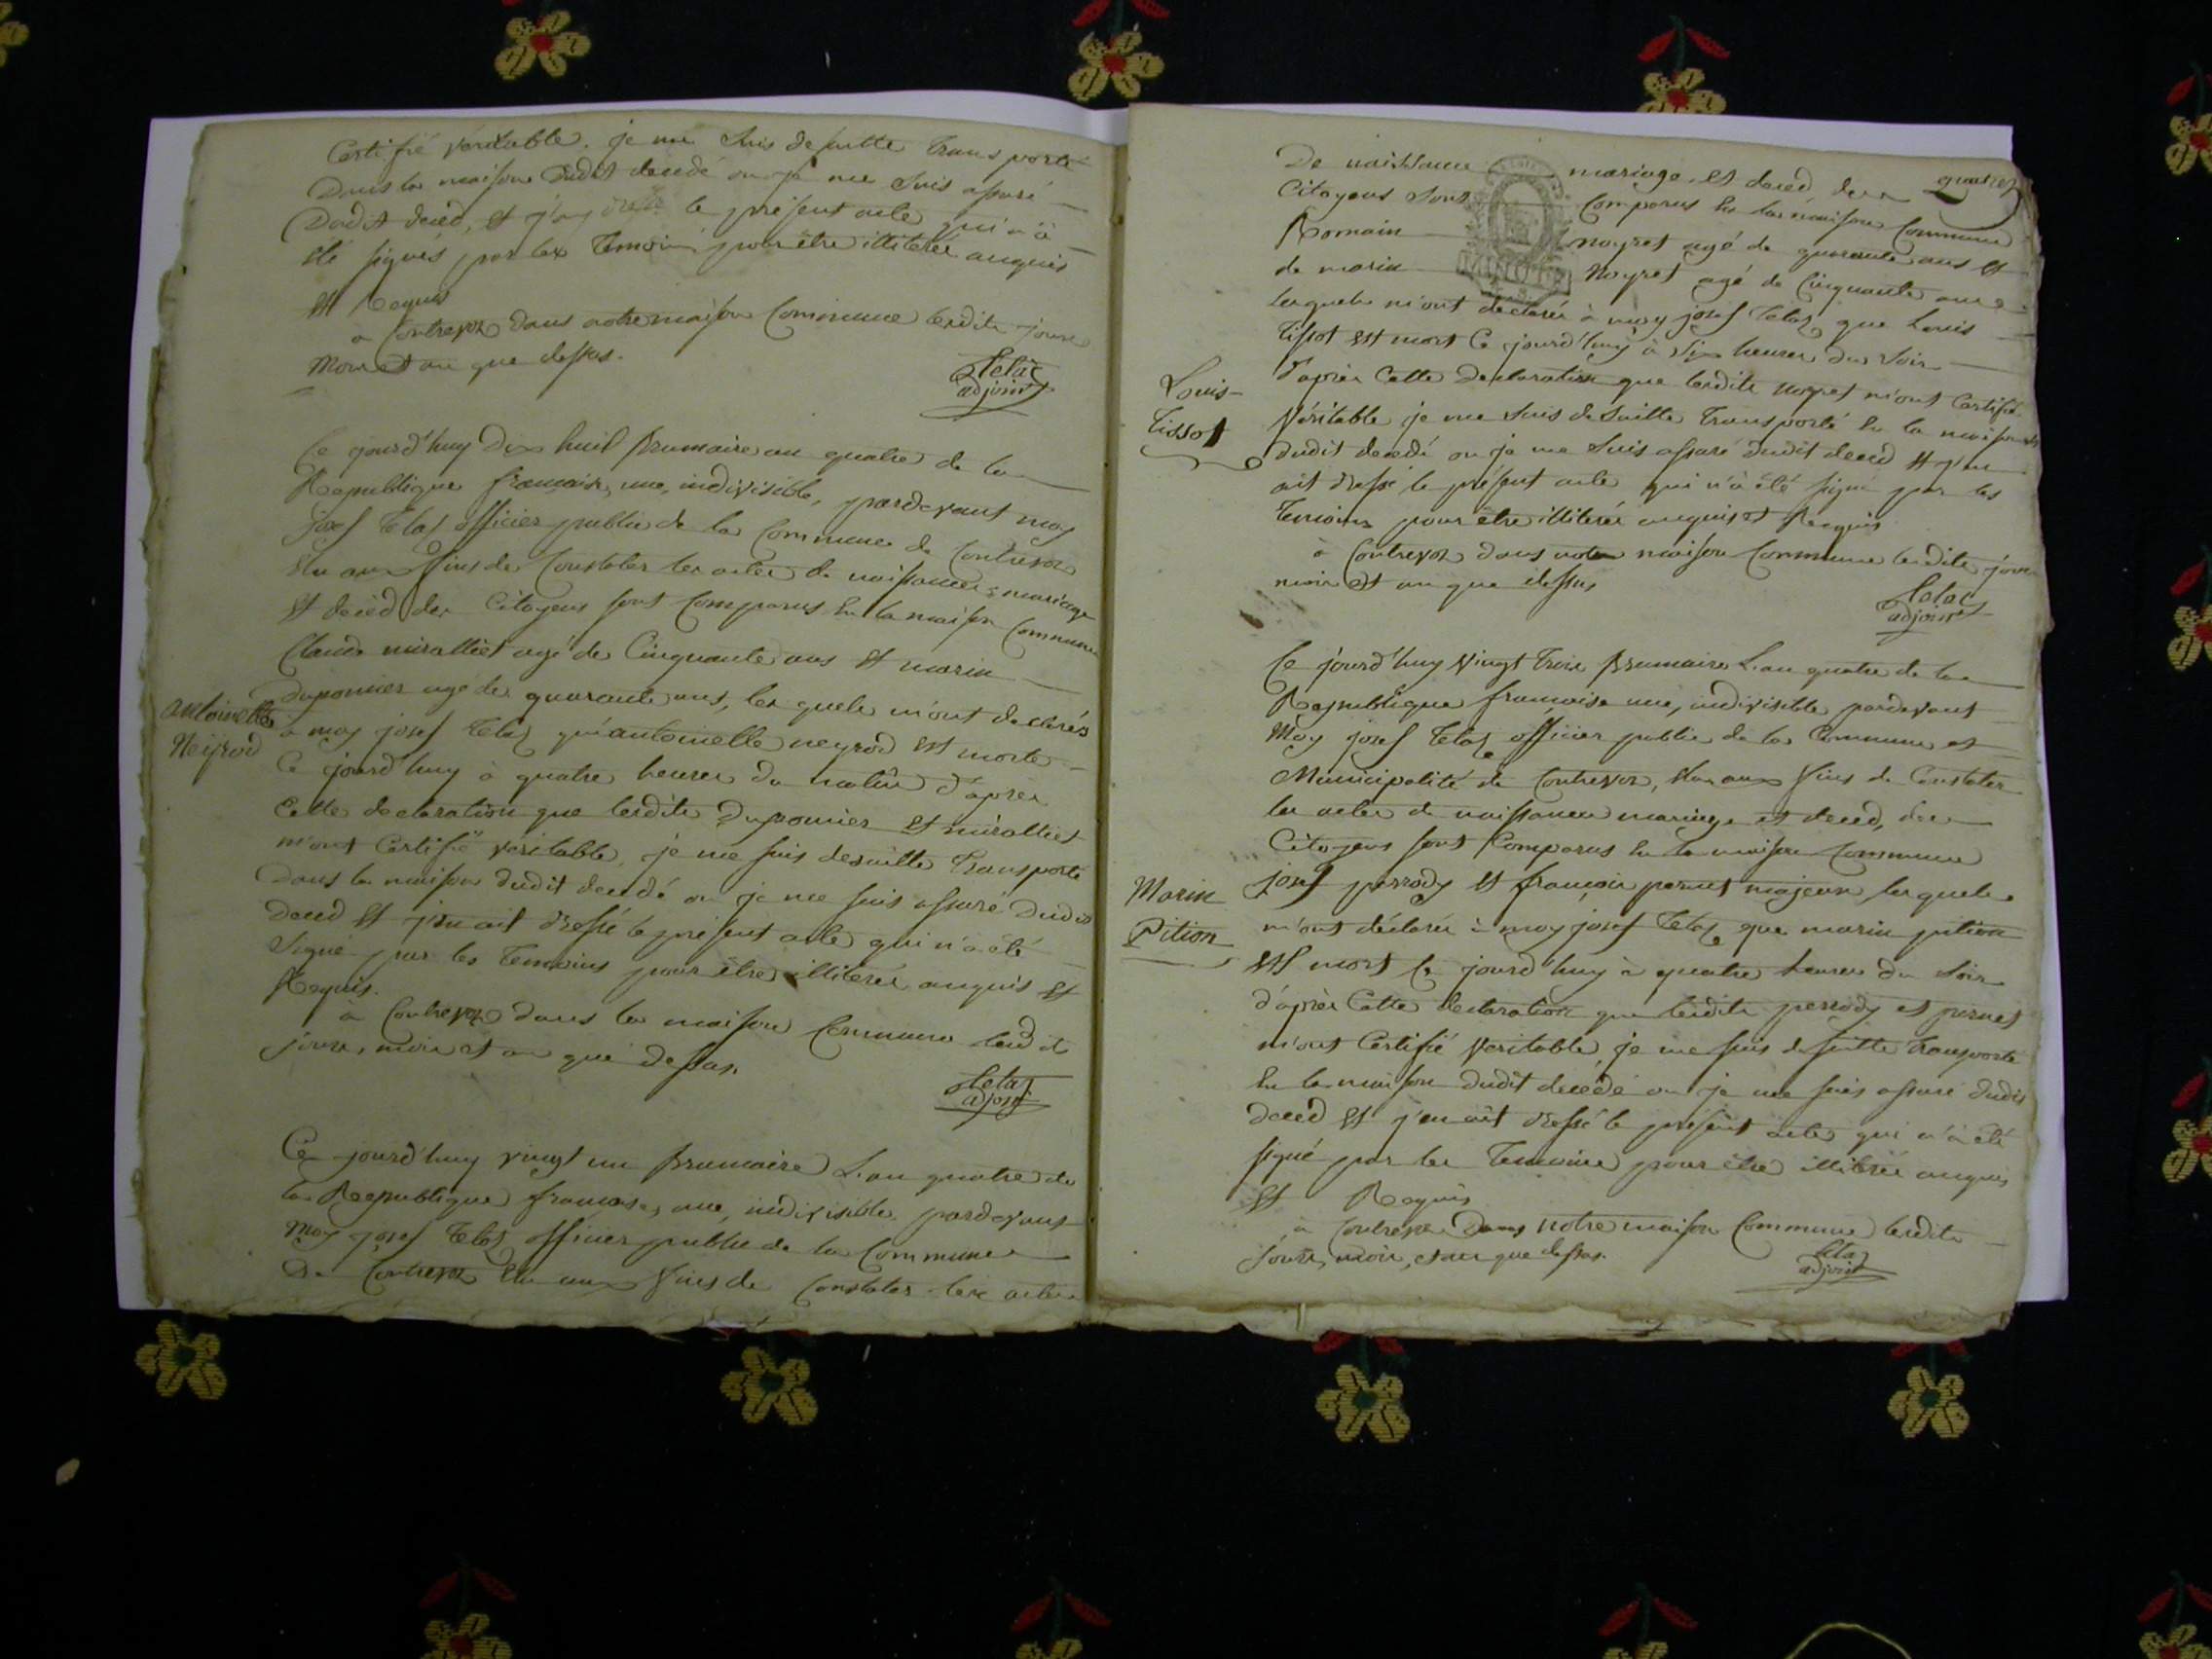 Certifié véritable. je me suis de suitte transporté
Dans la maison dudit decedé ou je me suis assuré
Dudit deced, et j'ay dressé le present acte qui n'a
été signés par les temoins pour être illiterés anquis
et Requis
a Contrevoz dans notre maison Commune lesdits jour
Mois et an que dessus.
Tetaz
adjoint
Ce jourd'huy Dix huit Brumaire an quatre de la
Republique francaise, une, indivisible, pardevant moy
Josef Tetaz officier public de la Commune de Contrevoz
elu aux fins de Constater les actes de naissances, mariage
et deced des Citoyens sont Comparus en la maison Commune
Claude miralliet agé de Cinquante ans et marin
duponier agé de quarante ans, les quels m'ont declarés
a moy josef Tetaz qu'antoinette neyrod est morte
Ce jourd'huy à quatre heures du matin d'après
Cette declaration que lesdits Duponier et miralliet
m'ont Certifié veritable, je me suis desuitte transporté
Dans la maison dudit decedé ou je me suis assuré dudit
deced et j'en ait dressé le present acte qui n'a été
Signé par les temoins pour être illiterés anquis et
Requis.
a Contrevoz dans la maison Commune lesdit
jour, mois et an que dessus.
Tetaz
adjoint
antoinette
Neyrod
Ce jourd'huy vingt un Brumaire L'an quatre de
la Republique francaise, une, indivisible, pardevant
Moy josef Tetaz officier public de la Commune
De Contrevoz elu aux fins de Constater les actes
De naissance mariage, et deced des quatre
Citoyens sont Comparus en la maison Commune
Romain noyret agé de quarante ans et
de marin Noyret agé de Cinquante ans
lesquels m'ont declarés à moy josef Tetaz que Louis
Tissot est mort Ce jourd'huy à six heures du soir
d'après Cette declaration que lesdits noyret m'ont Certifié
Véritable je me suis de suitte transporté en la maison
dudit decedé ou je me suis assuré dudit deced et j'en
ait dressé le présent acte qui n'à été signé par les
temoins pour être illiterés anquis et Requis
à Contrevoz dans notre maison Commune lesdits jour
mois et an que dessus
Tetaz
adjoint
Louis
Tissot
Ce jourd'huy vingt trois Brumaire L'an quatre de la
Republique francoise une, indivisible pardevant
Moy josef Tetaz officier public de la Commune et
Municipalité de Contrevoz, elu aux fins de Constater
les actes de naissances mariage et deced, des
Citoyens sont Comparus en la maison Commune
josef perrody et françois pernet majeurs lesquels
m'ont déclarés à moy josef Tetaz que marin pition
est mort Ce jourd'huy à quatre heures du soir
d'après Cette declaration que lesdits perrody et pernet
m'ont Certifié veritable, je me suis de suitte transporté
en la maison dudit decédé ou je me suis assuré dudit
deced et j'en ait dressé le présent acte qui n'à été
signé par les temoins pour être illiterés anquis
et Requis
a Contrevoz Dans notre maison Commune lesdits
jours, mois, et an que dessus.
Tetaz
adjoint
Marin
Pition